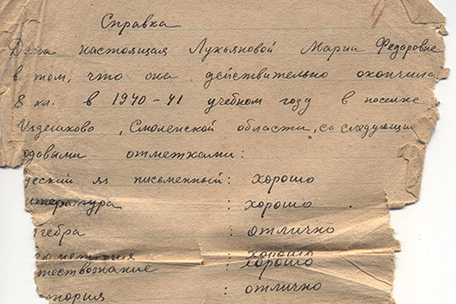 Справка
Дана настоящая Лукьяновой Марии Федоровне
в том, что она действительно окончила
8 кл. в 1940-41 учебном году в поселке
Издешково, Смоленской области, со следующими
одовами отметками:
усский яз письменный: хорошо
итература : хорошо
лгебра : отлично
ометрия : хорошо
тествознание : хорошо
тория : отлично